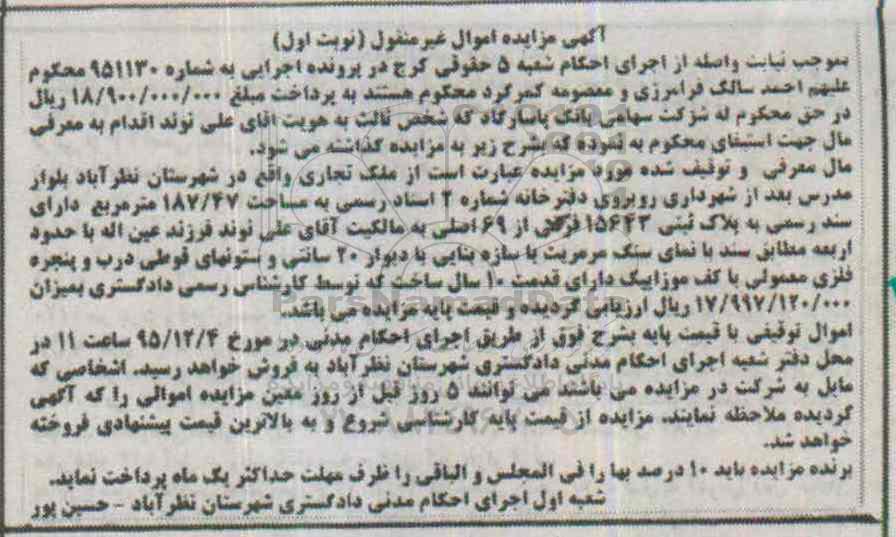 آگهی مزایده اموال غیرمنقول (نوبت اول)
بموجب نیابت واصله از اجرای احکام شعبه ۵ حقوقی کرج در پرونده اجرایی به شماره ۹۵۱۱۳۰ محکوم
علیهم احمد سالک فرامرزی و معصومه کمرگرد محکوم هستند به پرداخت مبلغ ۱۸/۹۰۰/۰۰۰/۰۰۰ ریال
در حق محکوم له شرکت سهامی بانک پاسارگاد که شخص ثالث به هویت آقای علی نوند اقدام به معرفی
مال جهت استیفای محکوم به نموده که بشرح زیر به مزایده گذاشته می شود.
مال معرفی و توقیف شده مورد مزایده عبارت است از ملک تجاری واقع در شهرستان نظرآباد بلوار
مدرس بعد از شهرداری روبروی دفترخانه شماره ۲ اسناد رسمی به مساحت ۱۸۷/۴۷ مترمربع دارای
سند رسمی به پلاک ثبتی ۱۵۶۴۳ فرعی از ۶۹ اصلی به مالکیت آقای علی نوند فرزند عین اله با حدود
اربعه مطابق سند با نمای سنگ مرمریت با سازه بنایی با دیوار ۲۰ سانتی و ستونهای قوطی درب و پنجره
فلزی معمولی با کف موزاییک دارای قدمت ۱۰ سال ساخت که توسط کارشناس رسمی دادگستری بمیزان
۱۷/۹۹۷/۱۲۰/۰۰۰ ریال ارزیابی گردیده و قیمت پایه مزایده می باشد.
اموال توقیفی با قیمت پایه بشرح فوق از طریق اجرای احکام مدنی در مورخ ۹۵/۱۲/۴ ساعت ۱۱ در
محل دفتر شعبه اجرای احکام مدنی دادگستری شهرستان نظرآباد به فروش خواهد رسید. اشخاصی که
مایل به شرکت در مزایده می باشند می توانند ۵ روز قبل از روز معین مزایده اموالی را که آگهی
گردیده ملاحظه نمایند. مزایده از قیمت پایه کارشناسی شروع و به بالاترین قیمت پیشنهادی فروخته
خواهد شد.
برنده مزایده باید ۱۰ درصد بها را فی المجلس و الباقی را ظرف مهلت حداکثر یک ماه پرداخت نماید.
شعبه اول اجرای احکام مدنی دادگستری شهرستان نظرآباد - حسین پور
ParsNamadData